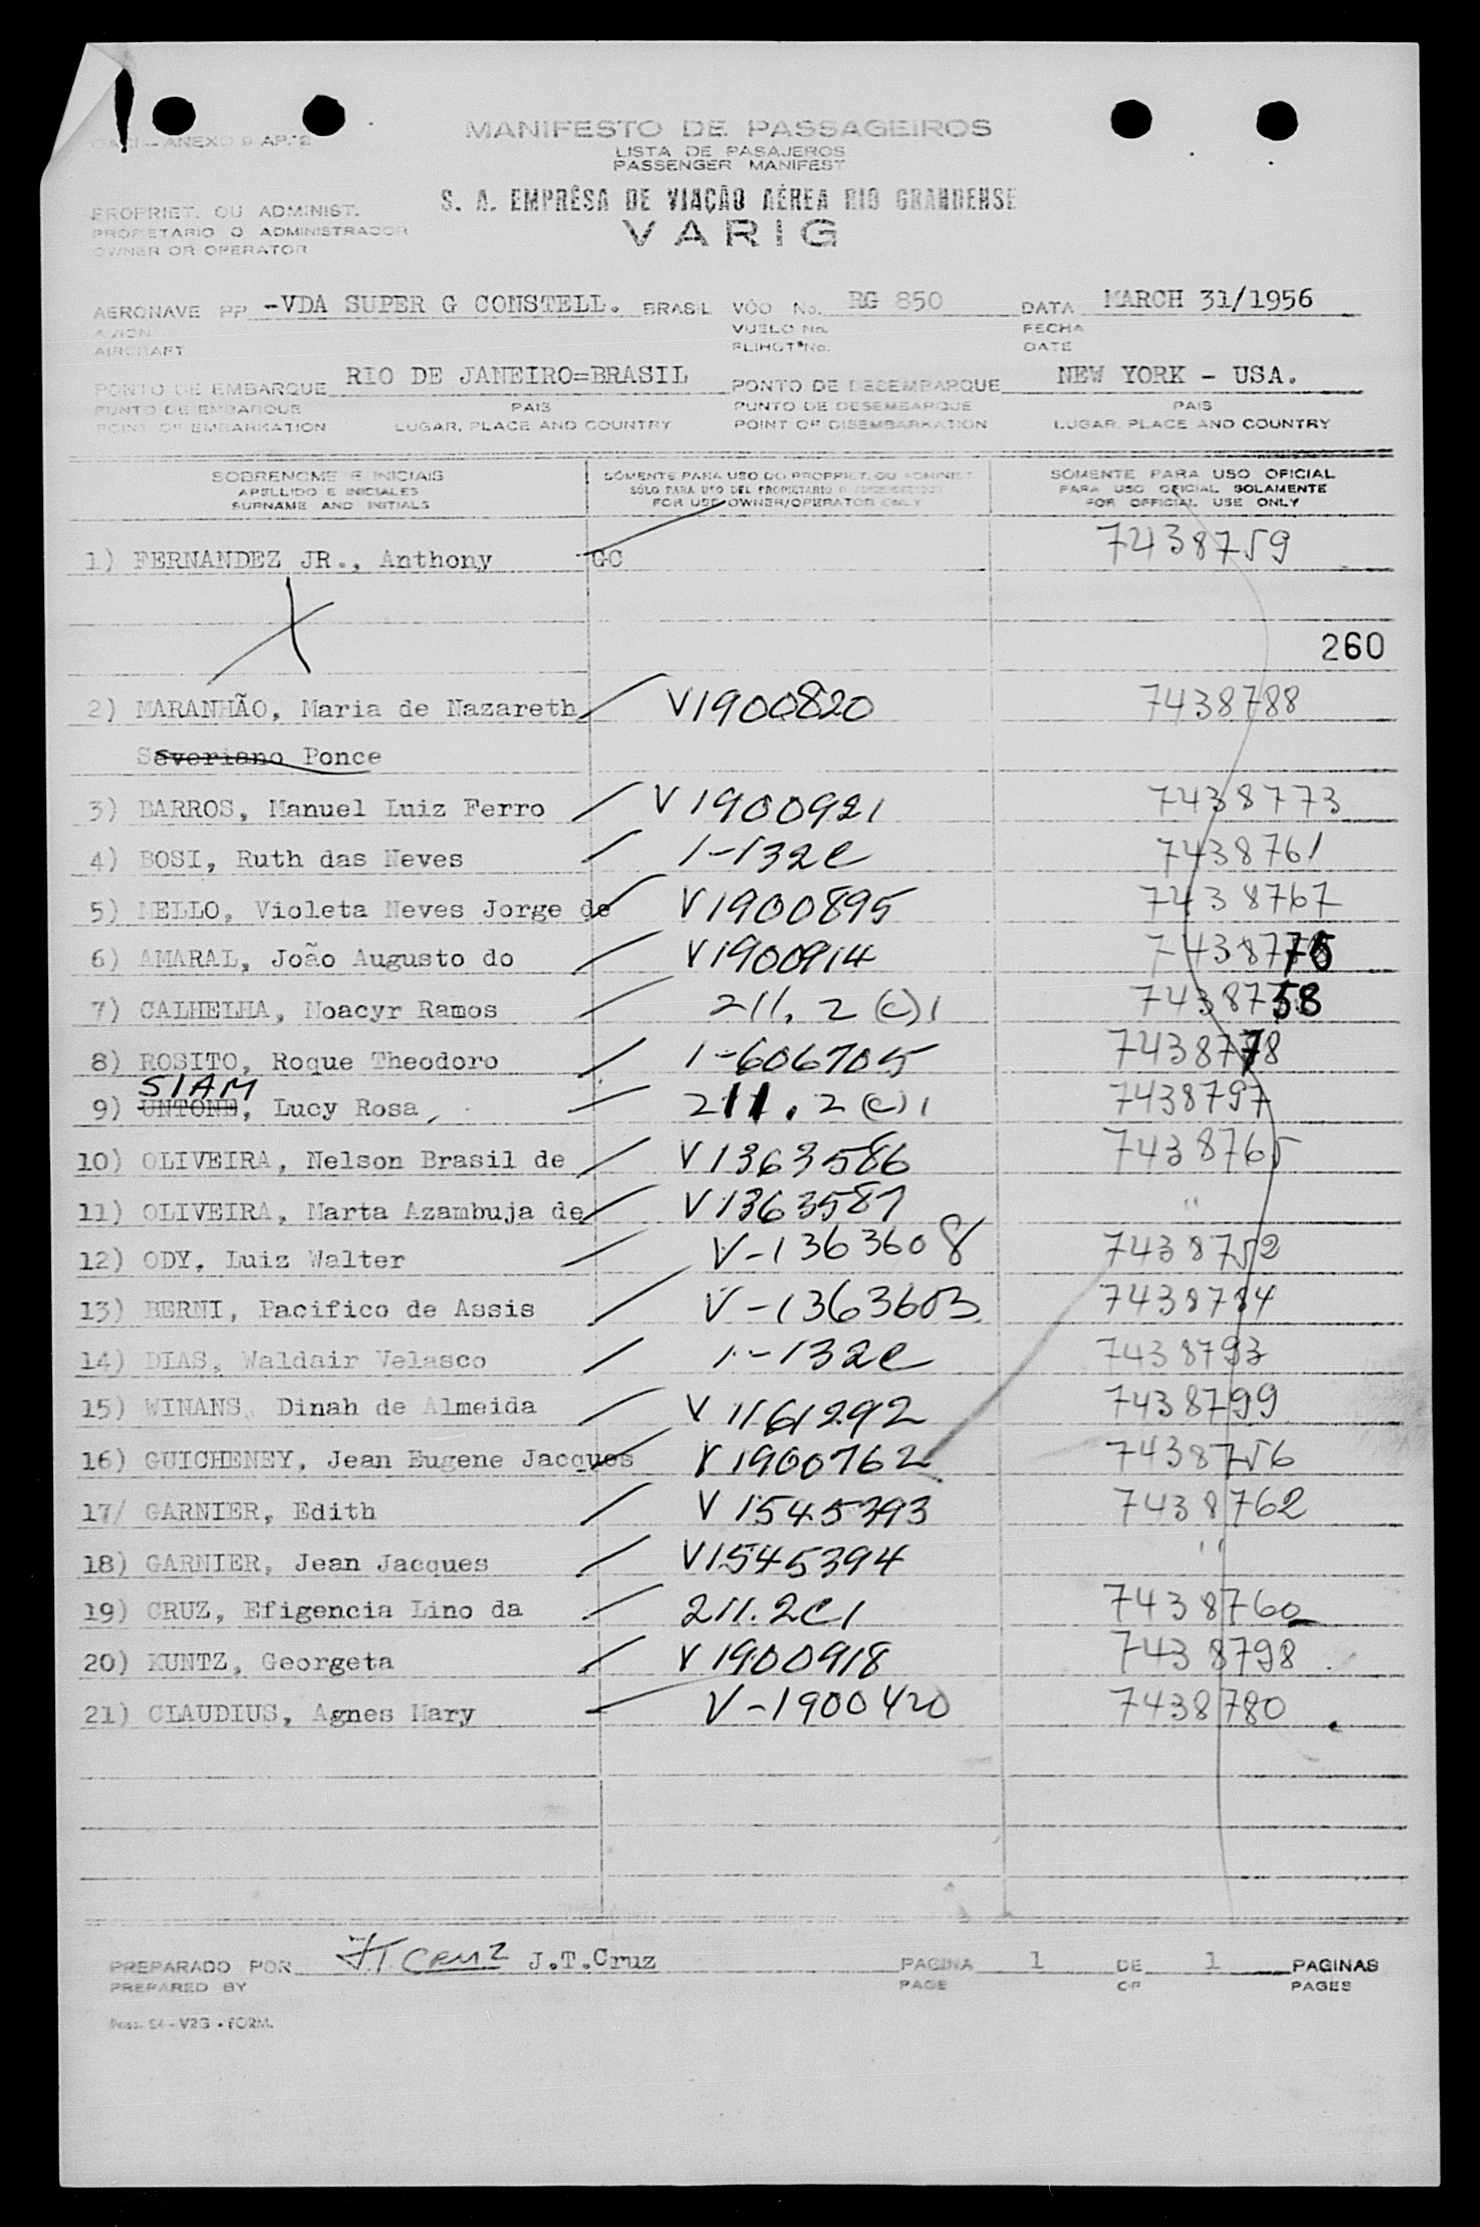 OACI - ANEXO 9 AP. 2
MANIFESTO DE PASSAGEIROS
LISTA DE PASAJEROS
PASSENGER MANIFEST
S. A. EMPRÊSA DE VIAÇÃO AÉREA RIO GRANDENSE
VARIG
PROPRIET. OU ADMINIST.
PROPIETARIO O ADMINISTRADOR
OWNER OR OPERATOR
AERONAVE PP -VDA SUPER G CONSTELL. BRASIL VÔO No. RG 850 DATA MARCH 31/1956
AVION VUELO No. FECHA
AIRCRAFT FLIHGT No. DATE
PONTO DE EMBARQUE RIO DE JANEIRO=BRASIL PONTO DE DESEMBARQUE NEW YORK - USA.
PUNTO DE EMBARQUE PAIS PUNTO DE DESEMBARQUE PAIS
POINT OF EMBARKATION LUGAR, PLACE AND COUNTRY POINT OF DISEMBARKATION LUGAR, PLACE AND COUNTRY
SOBRENOME E INICIAIS SÓMENTE PARA USO DO PROPRIET. OU ADMINIST. SÓMENTE PARA USO OFICIAL
APELLIDO E INICIALES SÓLO PARA USO DEL PROPIETARIO O ADMINISTRADOR PARA USO OFICIAL SOLAMENTE
SURNAME AND INITIALS FOR USE OWNER/OPERATOR ONLY FOR OFFICIAL USE ONLY
1) FERNANDEZ JR., Anthony GC 7438759
260
2) MARANHÃO, Maria de Nazareth V1900820 7438788
Severiano Ponce
3) BARROS, Manuel Luiz Ferro V1900921 7438773
4) BOSI, Ruth das Neves 1-132e 7438761
5) MELLO, Violeta Neves Jorge de V1900895 7438767
6) AMARAL, João Augusto do V1900914 7438776
7) CALHELHA, Moacyr Ramos 211.2(c)1 7438758
8) ROSITO, Roque Theodoro 1-606705 7438778
SIAM
9) UNTONE, Lucy Rosa 211.2(c)1 7438797
10) OLIVEIRA, Nelson Brasil de V1363586 7438765
11) OLIVEIRA, Marta Azambuja de V1363587 "
12) ODY, Luiz Walter V-1363608 7438752
13) BERNI, Pacifico de Assis V-1363603 7438784
14) DIAS, Waldair Velasco 1-132e 7438793
15) WINANS, Dinah de Almeida V1161292 7438799
16) GUICHENEY, Jean Eugene Jacques V1900762 7438756
17/ GARNIER, Edith V1545393 7438762
18) GARNIER, Jean Jacques V1545394 "
19) CRUZ, Efigencia Lino da 211.2C1 7438760
20) KUNTZ, Georgeta V1900918 7438798
21) CLAUDIUS, Agnes Mary V-1900420 7438780
PREPARADO POR JT Cruz J.T.Cruz PAGINA 1 DE 1 PAGINAS
PREPARED BY PAGE OF PAGES
V23 - FORM.